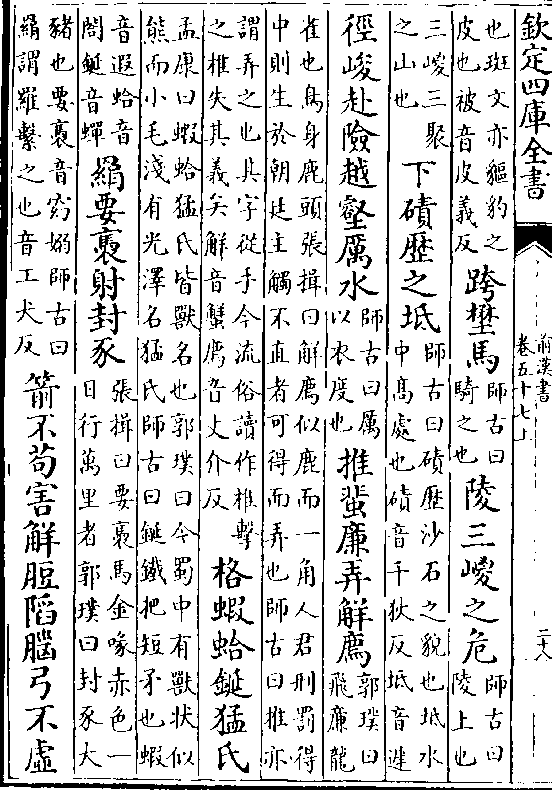 欽定四庫全書
前漢書
卷五十七上
二十八
也斑文亦貙豹之皮也被音皮義反跨壄馬師古曰騎之也陵三嵕之危師古曰陵上也
三嵕三聚之山也下磧歷之坻師古曰磧歷沙石之貌也坻水中髙處也磧音千狄反坻音遲
徑峻赴險越壑厲水師古曰厲以衣度也推蜚廉弄解廌郭璞曰飛廉龍
雀也鳥身鹿頭張揖曰解廌似鹿而一角人君刑罰得中則生於朝廷主觸不直者可得而弄也師古曰推亦
謂弄之也其字從手今流俗讀作椎擊之椎失其義矣解音蟹廌音丈介反格蝦蛤鋋猛氏
孟康曰蝦蛤猛氏皆獸名也郭璞曰今蜀中有獸狀似熊而小毛淺有光澤名猛氏師古曰鋋鐵把短矛也蝦
音遐蛤音閤鋋音蟬羂要褭射封豕張揖曰要褭馬金喙赤色一日行萬里者郭璞曰封豕大
豬也要褭音窈嫋師古曰羂謂羅繫之也音工犬反箭不苟害解脰陷腦弓不虛